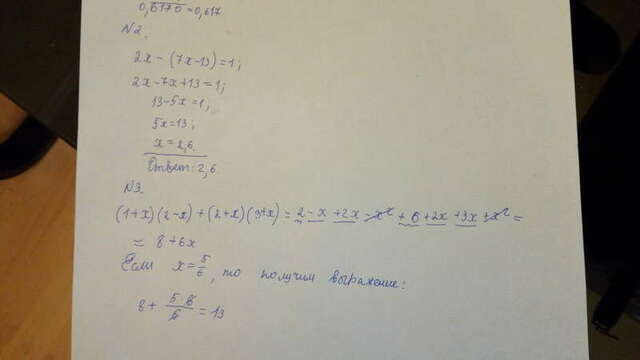 0,6170 = 0,617
N2.
2x - (7x-13) = 1;
2x-7x+13 = 1;
13-5x = 1,
5x = 13;
x = 2,6.
Ответ: 2,6
N3.
(1+x)(2-x) + (2+x)(3+x) = 2 - x + 2x - x² + 6 + 2x + 3x + x² =
= 8 + 6x
Если x = 5/6, то получим выражение:
8 + 5·6/6 = 13